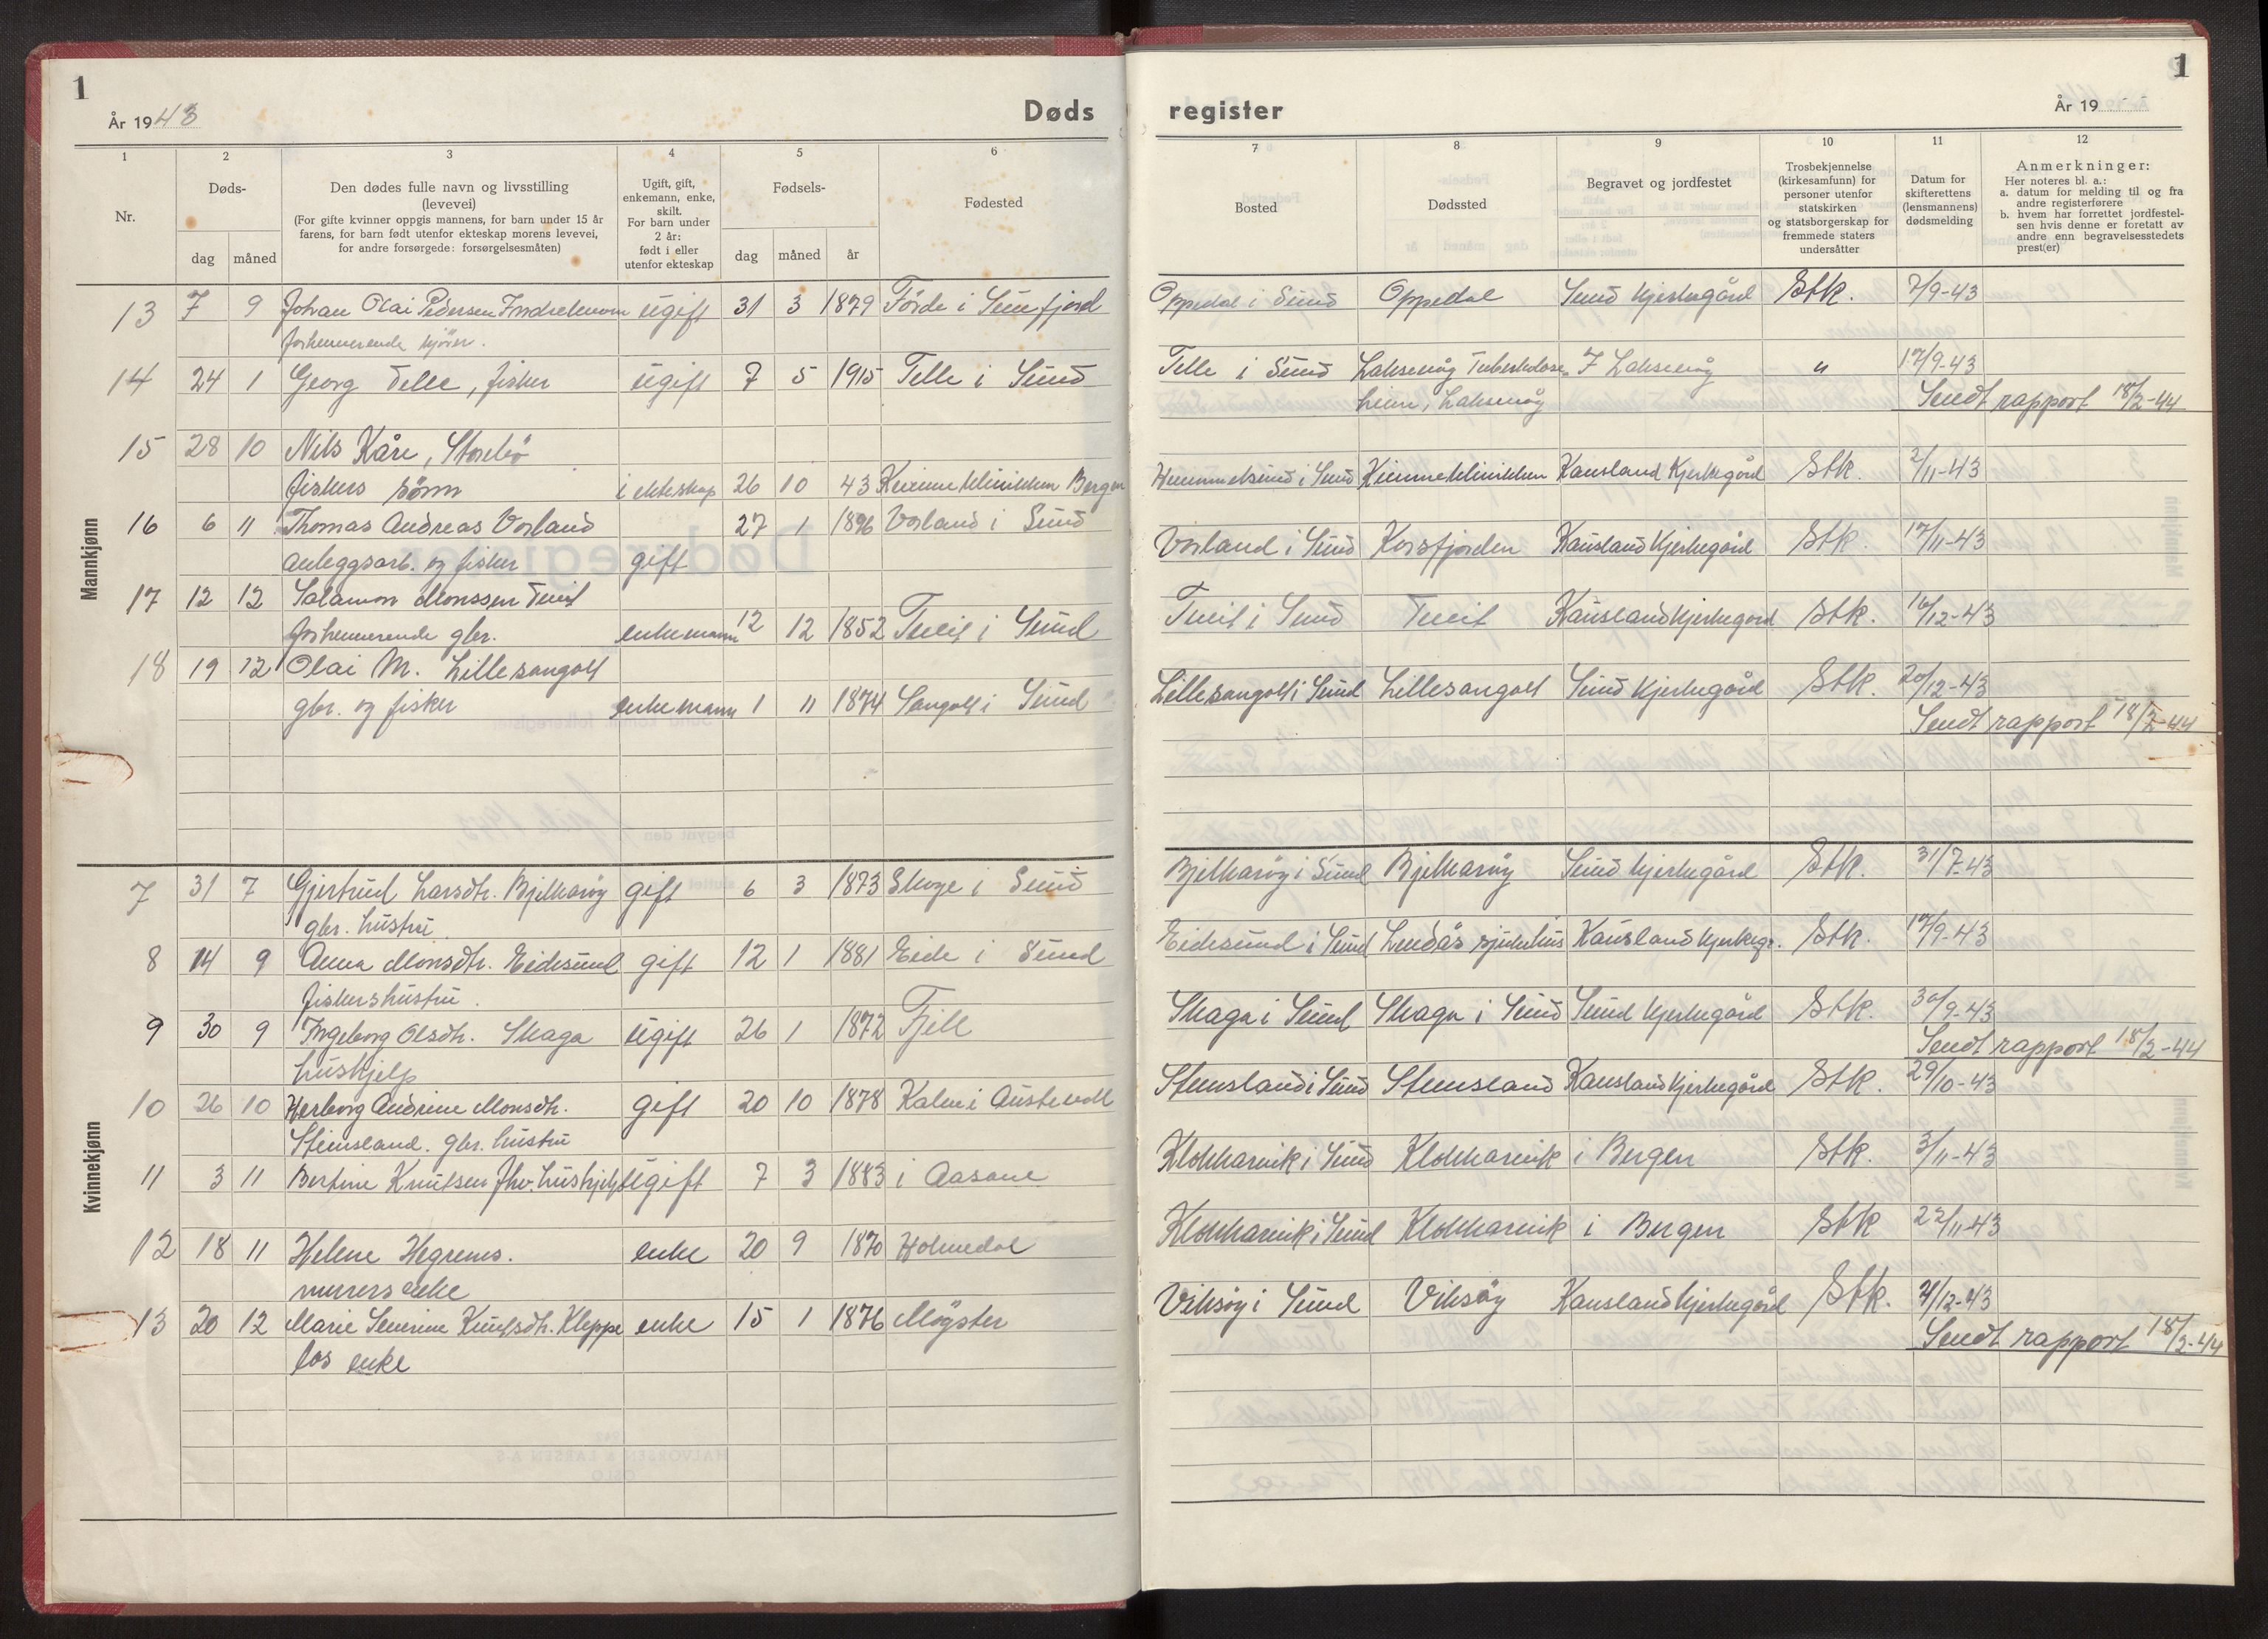 1
År 1943
Døds
1
2
3
4
5
6
Nr.
Døds-
dag
måned
Den dødes fulle navn og livsstilling
(levevei)
(For gifte kvinner oppgis mannens, for barn under 15 år
farens, for barn født utenfor ekteskap morens levevei,
for andre forsørgede: forsørgelsesmåten)
Ugift, gift,
enkemann, enke,
skilt.
For barn under
2 år:
født i eller
utenfor ekteskap
Fødsels-
dag
måned
år
Fødested
Mannkjønn
13 7 9 Johan Olai Pedersen ugift 31 3 1879 Förde i Sunnfjord
forhenverende
14 24 1 Georg Telle, fisker ugift 7 5 1915 Telle i Sund
15 28 10 Nils Kåre, Storebö
fiskers sönn i ekteskap 26 10 43 Kvinneklinikken Bergen
16 6 11 Thomas Andreas Vorland 27 1 1896 Vorland i Sund
anleggsarb. og fisker gift
17 12 12 Salamon Monssen Tveit
forhenverende gbr. enkemann 12 12 1852 Tveit i Sund
18 19 12 Olai M. Lillesangolt
gbr. og fisker enkemann 1 11 1874 Sangolt i Sund
Kvinnekjønn
7 31 7 Gjertrud Larsdtr. Bjelkaröy gift 6 3 1873 Skoge i Sund
gbr. hustru
8 14 9 Anna Monsdtr. Eidesund gift 12 1 1881 Eide i Sund
fiskershustru.
9 30 9 Ingeborg Olsdtr. Skaga ugift 26 1 1872 Fjell
hushjelp
10 26 10 Herborg Andrine Monsdtr. gift 20 10 1878 Kalve i Austevoll
Steinsland. gbr. hustru
11 3 11 Bertine Knutsen fhv. hushjelp ugift 7 3 1883 i Aasane
12 18 11 Helene Hegrenes. enke 20 9 1870 Holmedal
murers enke
13 20 12 Marie Severine Knutsdtr. Kleppe enke 15 1 1876 Mögster
los enke
1
register
År 19
7
8
9
10
11
12
Bosted
Dødssted
Begravet og jordfestet
Trosbekjennelse
(kirkesamfunn) for
personer utenfor
statskirken
og statsborgerskap for
fremmede staters
undersåtter
Datum for
skifterettens
(lensmannens)
dødsmelding
Anmerkninger:
Her noteres bl. a.:
a. datum for melding til og fra
andre registerførere
b. hvem har forrettet jordfestel-
sen hvis denne er foretatt av
andre enn begravelsesstedets
prest(er)
Oppedal i Sund Oppedal Sund kjerkegård Stk. 7/9-43
Telle i Sund Laksevåg Tuberkulose- I Laksevåg " 17/9-43
heim, Laksevåg Sendt rapport 18/2-44
Hummelsund i Sund Kvinneklinikken Kausland Kjerkegård Stk. 2/11-43
Vorland i Sund Korsfjorden Kausland Kjerkegård Stk. 17/11-43
Tveit i Sund Tveit Kausland kjerkegård Stk. 16/12-43
Lillesangolt i Sund Lillesangolt Sund kjerkegård Stk. 20/12-43
Sendt rapport 18/2-44
Bjelkaröy i Sund Bjelkaröy Sund kjerkegård Stk. 31/7-43
Eidesund i Sund sjukehus Kausland kjerkegr. Stk. 17/9-43
Skaga i Sund Skaga i Sund Sund kjerkegård Stk. 30/9-43
Sendt rapport 18/2-44
Steinsland i Sund Steinsland Kausland kjerkegård Stk. 29/10-43
Klokkarvik i Sund Klokkarvik i Bergen Stk. 3/11-43
Klokkarvik i Sund Klokkarvik i Bergen Stk 22/11-43
Viksöy i Sund Viksöy Kausland kjerkegård Stk. /12-43
Sendt rapport 18/2-44